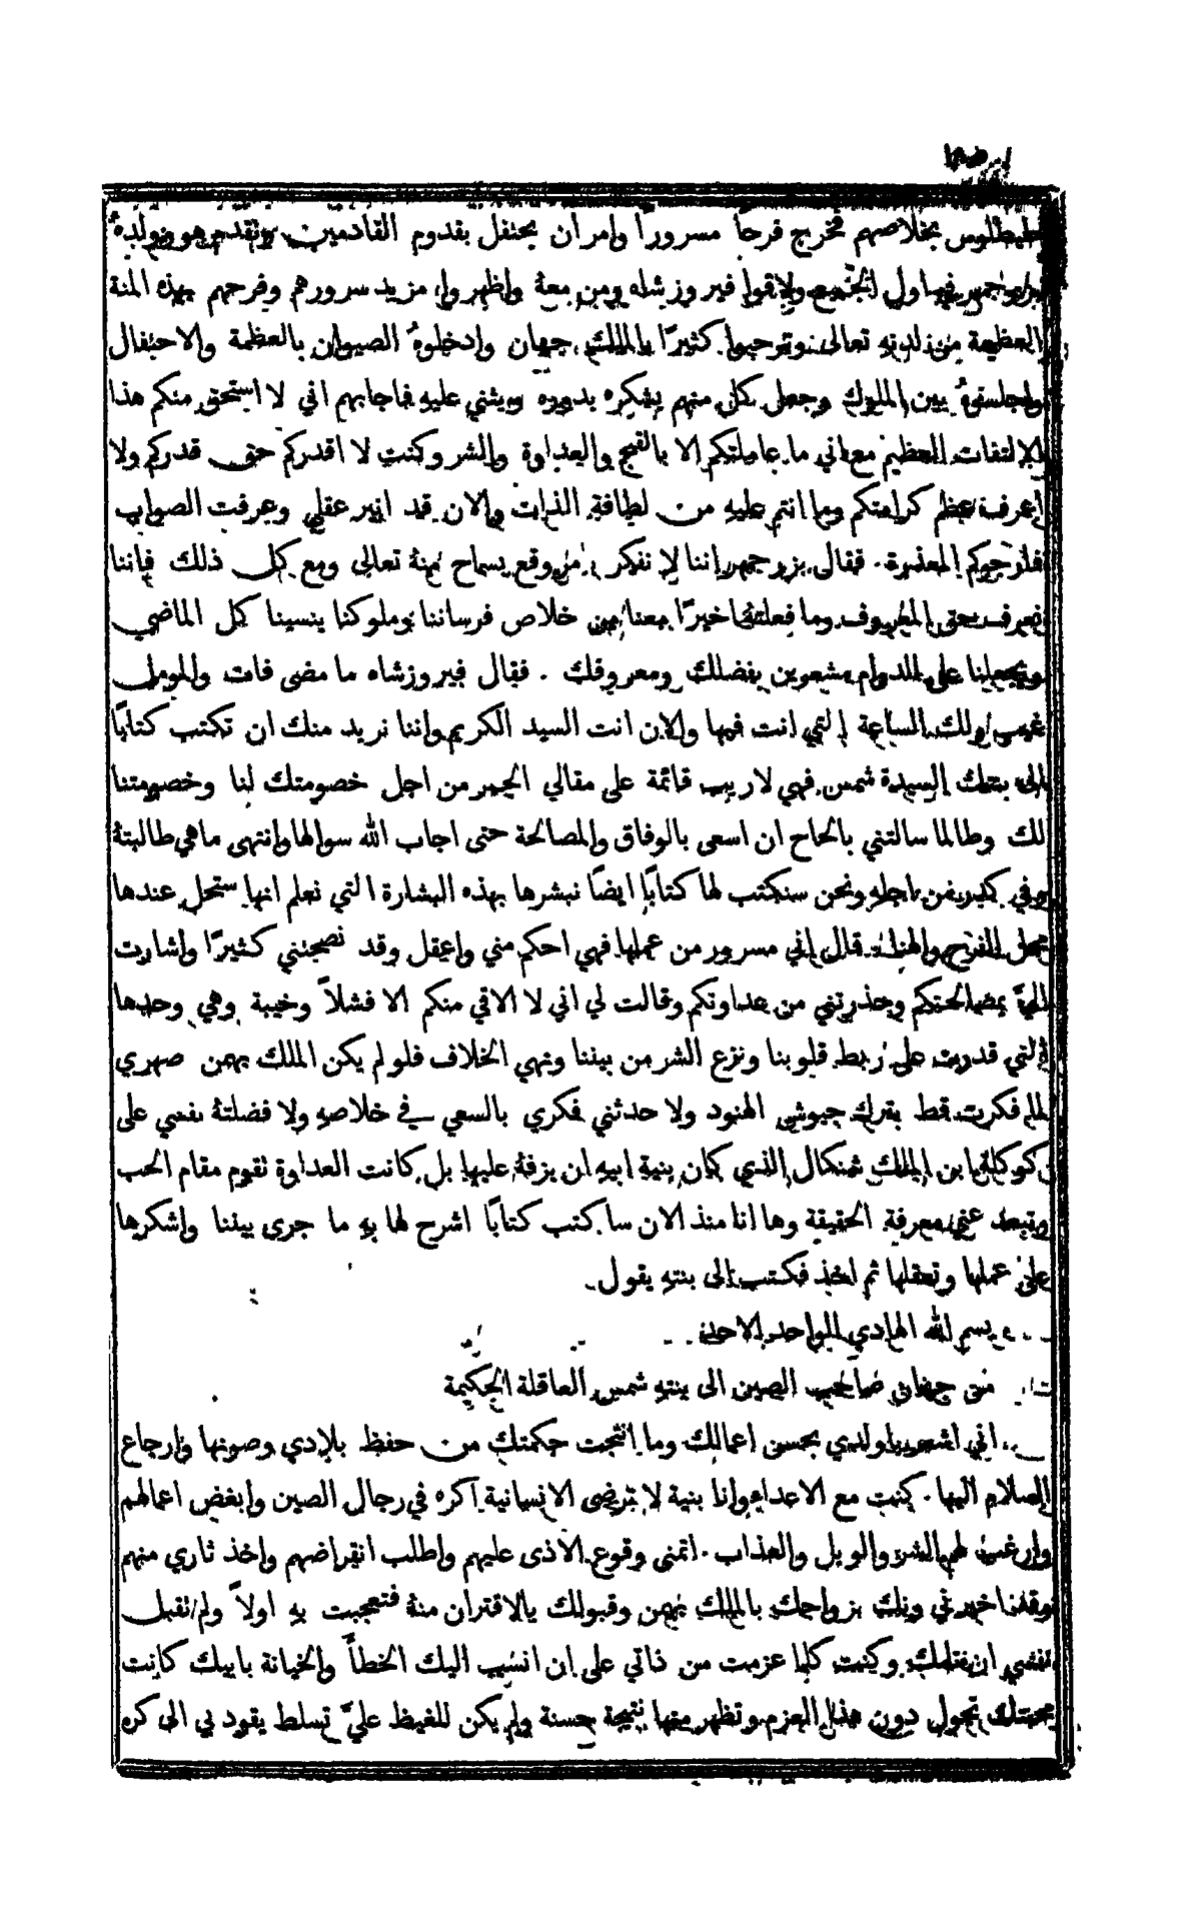 بخلاصهم فخرج فرحاً مسروراً وامر ان يحتفل بقدوم القادمين وتقدم هو وولده
ولاقوا فيروزشاه ومن معهُ واظهروا مزيد سرورهم وفرحهم بهذه المنة
العظيمة من لدنه تعالى وترحبوا كثيرًا بالملك جهان وادخلوهُ الصيوان بالعظمة والاحتفال
واجلسوهُ بين الملوك وجعل كل منهم يشكره بدوره ويثني عليه فاجابهم اني لا استحق منكم هذا
الالتفات العظيم مع اني ما عاملتكم الا بالقبيح والعداوة والشر وكنت لا اقدركم حق قدركم ولا
اعرف عظم كرامتكم وما انتم عليه من لطافة الذات والان قد انير عقلي وعرفت الصواب
فارجوكم المعذرة. فقال بزرجمهر اننا لا نفكر وقع بسماح منهُ تعالى ومع كل ذلك فاننا
نعرف حق المعروف وما فعلتهُ اخيرًا معنا من خلاص فرساننا وملوكنا ينسينا كل الماضي
ويجعلنا على الدوام مشعورين بفضلك ومعروفك . فقال فيروزشاه ما مضى فات والمومل
غيب ولك الساعة التي انت فيها والان انت السيد الكريم واننا نريد منك ان تكتب كتابًا
الى بنتك السيدة شمس فهي لا ريب قائمة على مقالي الجمر من اجل خصومتك لنا وخصومتنا
لك وطالما سالتني بالحاح ان اسعى بالوفاق والمصالحة حتى اجاب الله سوالها وانتهى ما هي طالبتهُ
وفي كدر من اجله ونحن سنكتب لها كتابًا ايضًا نبشرها بهذه البشارة التي نعلم انها ستحل عندها
محل الفرح والهناء. قال اني مسرور من عملها فهي احكم مني واعقل وقد نصحتني كثيرًا واشارت
اليَّ بمصالحتكم وحذرتني من عداوتكم وقالت لي اني لا الاقي منكم الا فشلاً وخيبة وهي وحدها
التي قدرت على ربط قلوبنا ونزع الشر من بيننا ونهي الخلاف فلو لم يكن الملك بهمن صهري
لما فكرت قط بترك جيوش الهنود ولا حدثني فكري بالسعي في خلاصه ولا فضلتهُ نفسي على
كوكلة ابن الملك شمنكال الذي كان بنية ابيه ان يزفهُ عليها بل كانت العداوة تقوم مقام الحب
وتبعد عني معرفة الحقيقة وها انا منذ الان ساكتب كتابًا اشرح لها به ما جرى بيننا واشكرها
على عملها وتعقلها ثم اخذ فكتب الى بنته يقول.
بسم الله الهادي الواحد الاحد
من جهان صاحب الصين الى بنته شمس العاقلة الحكيمة
اني اشعر يا ولدي بحسن اعمالك وما انتجت حكمتك من حفظ بلادي وصونها وارجاع
السلام اليها. كنت مع الاعداء وانا بنية لا ترضى الانسانية اكره في رجال الصين وابغض اعمالهم
وارغب لهم الشر والويل والعذاب. اتمنى وقوع الاذى عليهم واطلب انقراضهم واخذ ثاري منهم
وقد اخبرتني ويلك بزواجك بالملك بهمن وقبولك بالاقتران منهُ فتعجبت به اولاً ولم تقبل
نفسي ان يقتلك وكنت كلما عزمت من ذاتي على ان انسب اليك الخطأ والخيانة بابيك كانت
محبتك تحول دون هذا العزم وتظهر منها نتيجة حسنة ولم يكن للغيظ عليَّ تسلط يقود بي الى كره